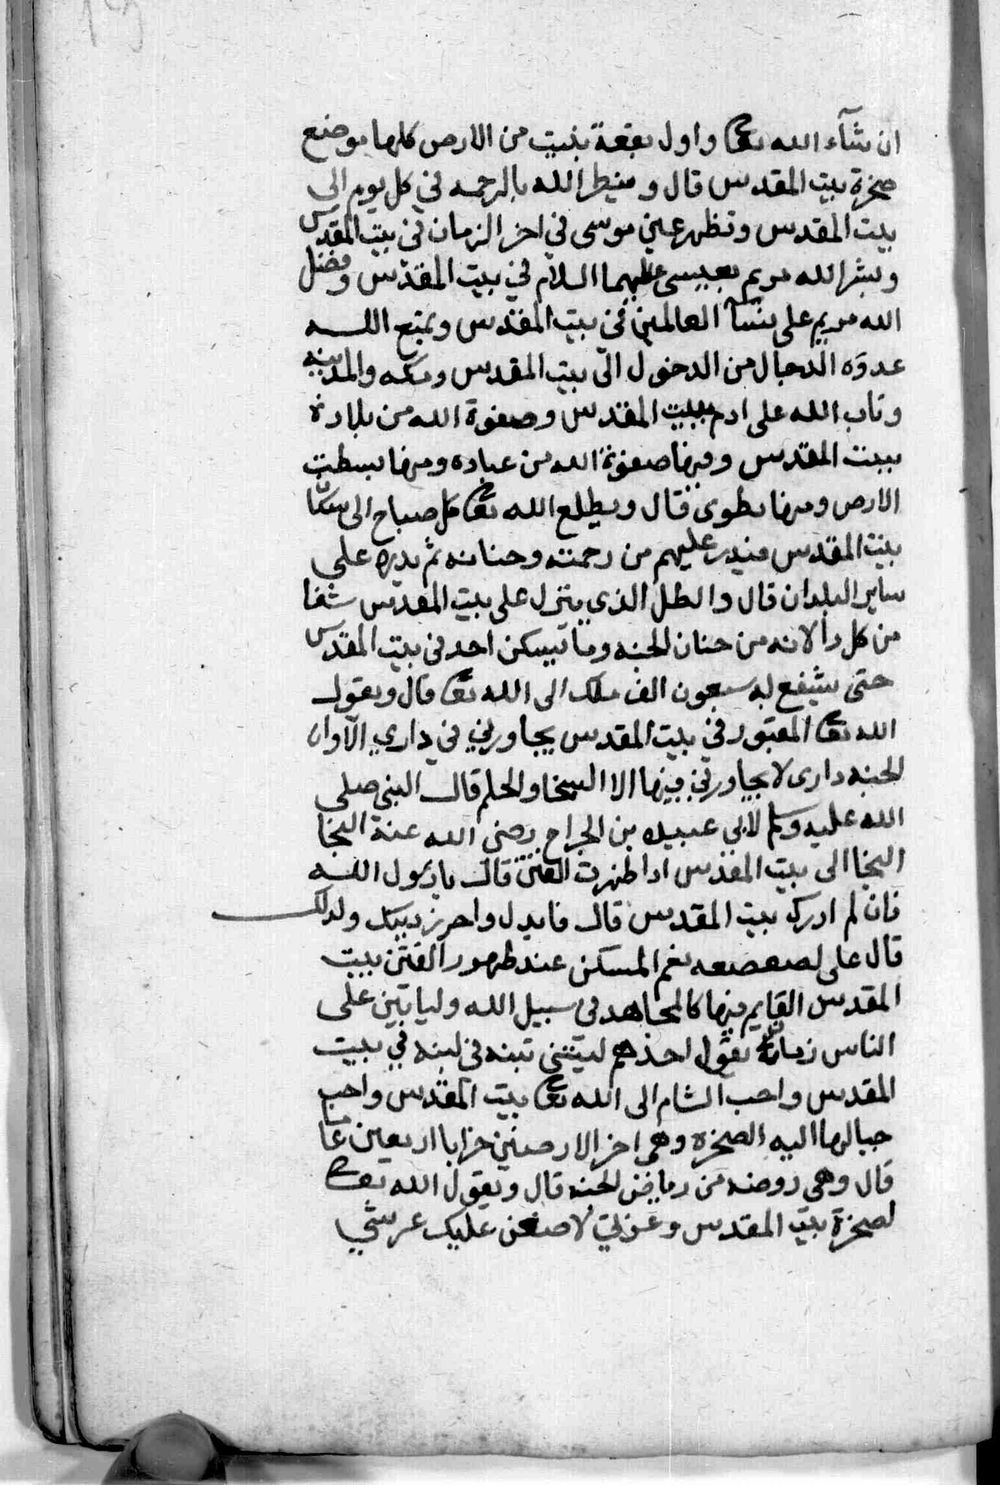 ان شآء الله تعا واول بقعة بنيت من الارض كلها موضع
صخرة بيت المقدس قال وينظر الله بالرحمه في كل يوم الى
بيت المقدس وتظهر عين موسى في اخر الزمان في بيت المقدس
وبشر الله مريم بعيسى عليهما السلام في بيت المقدس وفضل
الله مريم على نسآ العالمين في بيت المقدس ويمنع الله
عدوه الدجال من الدخول الى بيت المقدس ومكه والمدينه
وتاب الله على ادم ببيت المقدس وصفوة الله من بلاده
بيت المقدس وفيها صفوة الله من عباده ومنها بسطت
الارض ومنها تطوى قال ويطلع الله تعا كل صباح الى سكان
بيت المقدس فيدر عليهم من رحمته وحنانه ثم يدره على
ساير البلدان قال والطل الذي ينزل على بيت المقدس شفا
من كل دا لانه من حنان الجنه وما يسكن احد في بيت المقدس
حتى يشفع له سبعون الف ملك الى الله تعا قال ويقول
الله تعا المقبور في بيت المقدس يجاورني في داري الا وان
الجنه داري لا يجاورني فيها الا السخا والحلم قال النبي صلى
الله عليه وسلم لابي عبيده بن الجراح رضي الله عنه النجا
النجا الى بيت المقدس اذا ظهرت الفتن قال يا رسول الله
فان لم ادرك بيت المقدس قال فابدل واحرز دينك ولذلك
قال علي لصعصعه نعم المسكن عند ظهور الفتن بيت
المقدس القايم فيها كالمجاهد في سبيل الله ولياتين على
الناس زمان يقول احدهم ليتني تبنه في لبنه في بيت
المقدس واحب الشام الى الله تعا بيت المقدس واحب
جبالها اليه الصخره وهي اخر الارضين خرابا اربعين عاما
قال وهي روضه من رياض الجنه قال ويقول الله تعا
لصخرة بيت المقدس وعزتي لاضعن عليك عرشي